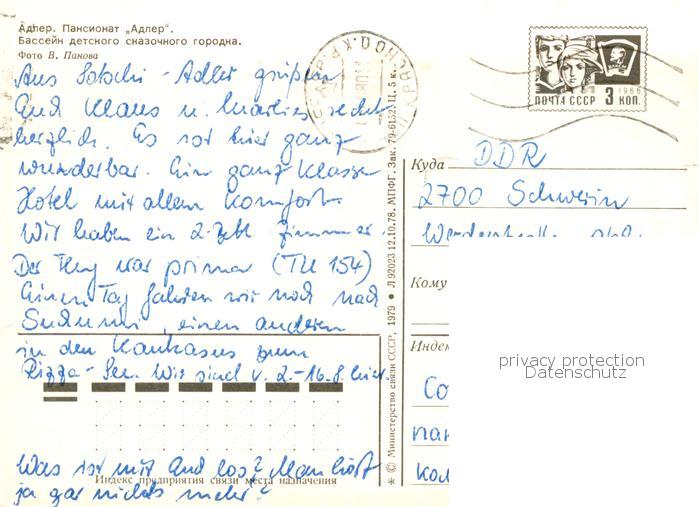 Адлер. Пансионат „Адлер“.
Бассейн детского сказочного городка.
Фото В. Панова
Aus Sotschi - Adler grüßen
Euch Klaus u. Marlies recht
herzlich. Es ist hier ganz
wunderbar. Ein ganz Klasse
Hotel mit allem Komfort.
Wir haben ein 2-Bett Zimmer.
Der Flug war prima (TU 154)
Einen Tag fahren wir noch nach
Suchumi, einen anderen
in den Kaukasus zum
Rizza-See. Wir sind v. 2.-16.8. hier.
Was ist mit Euch los? Man hört
ja gar nichts mehr?
Индекс предприятия связи места назначения
* © Министерство связи СССР, 1979 • Л 92023 12.10.78. МПФГ. Зак. 79-6152-III. 5 к.
ПОЧТА СССР 3 КОП.
1966
Куда
DDR
2700 Schwerin
Кому
Индекс
Со
пан
кол
privacy protection
Datenschutz